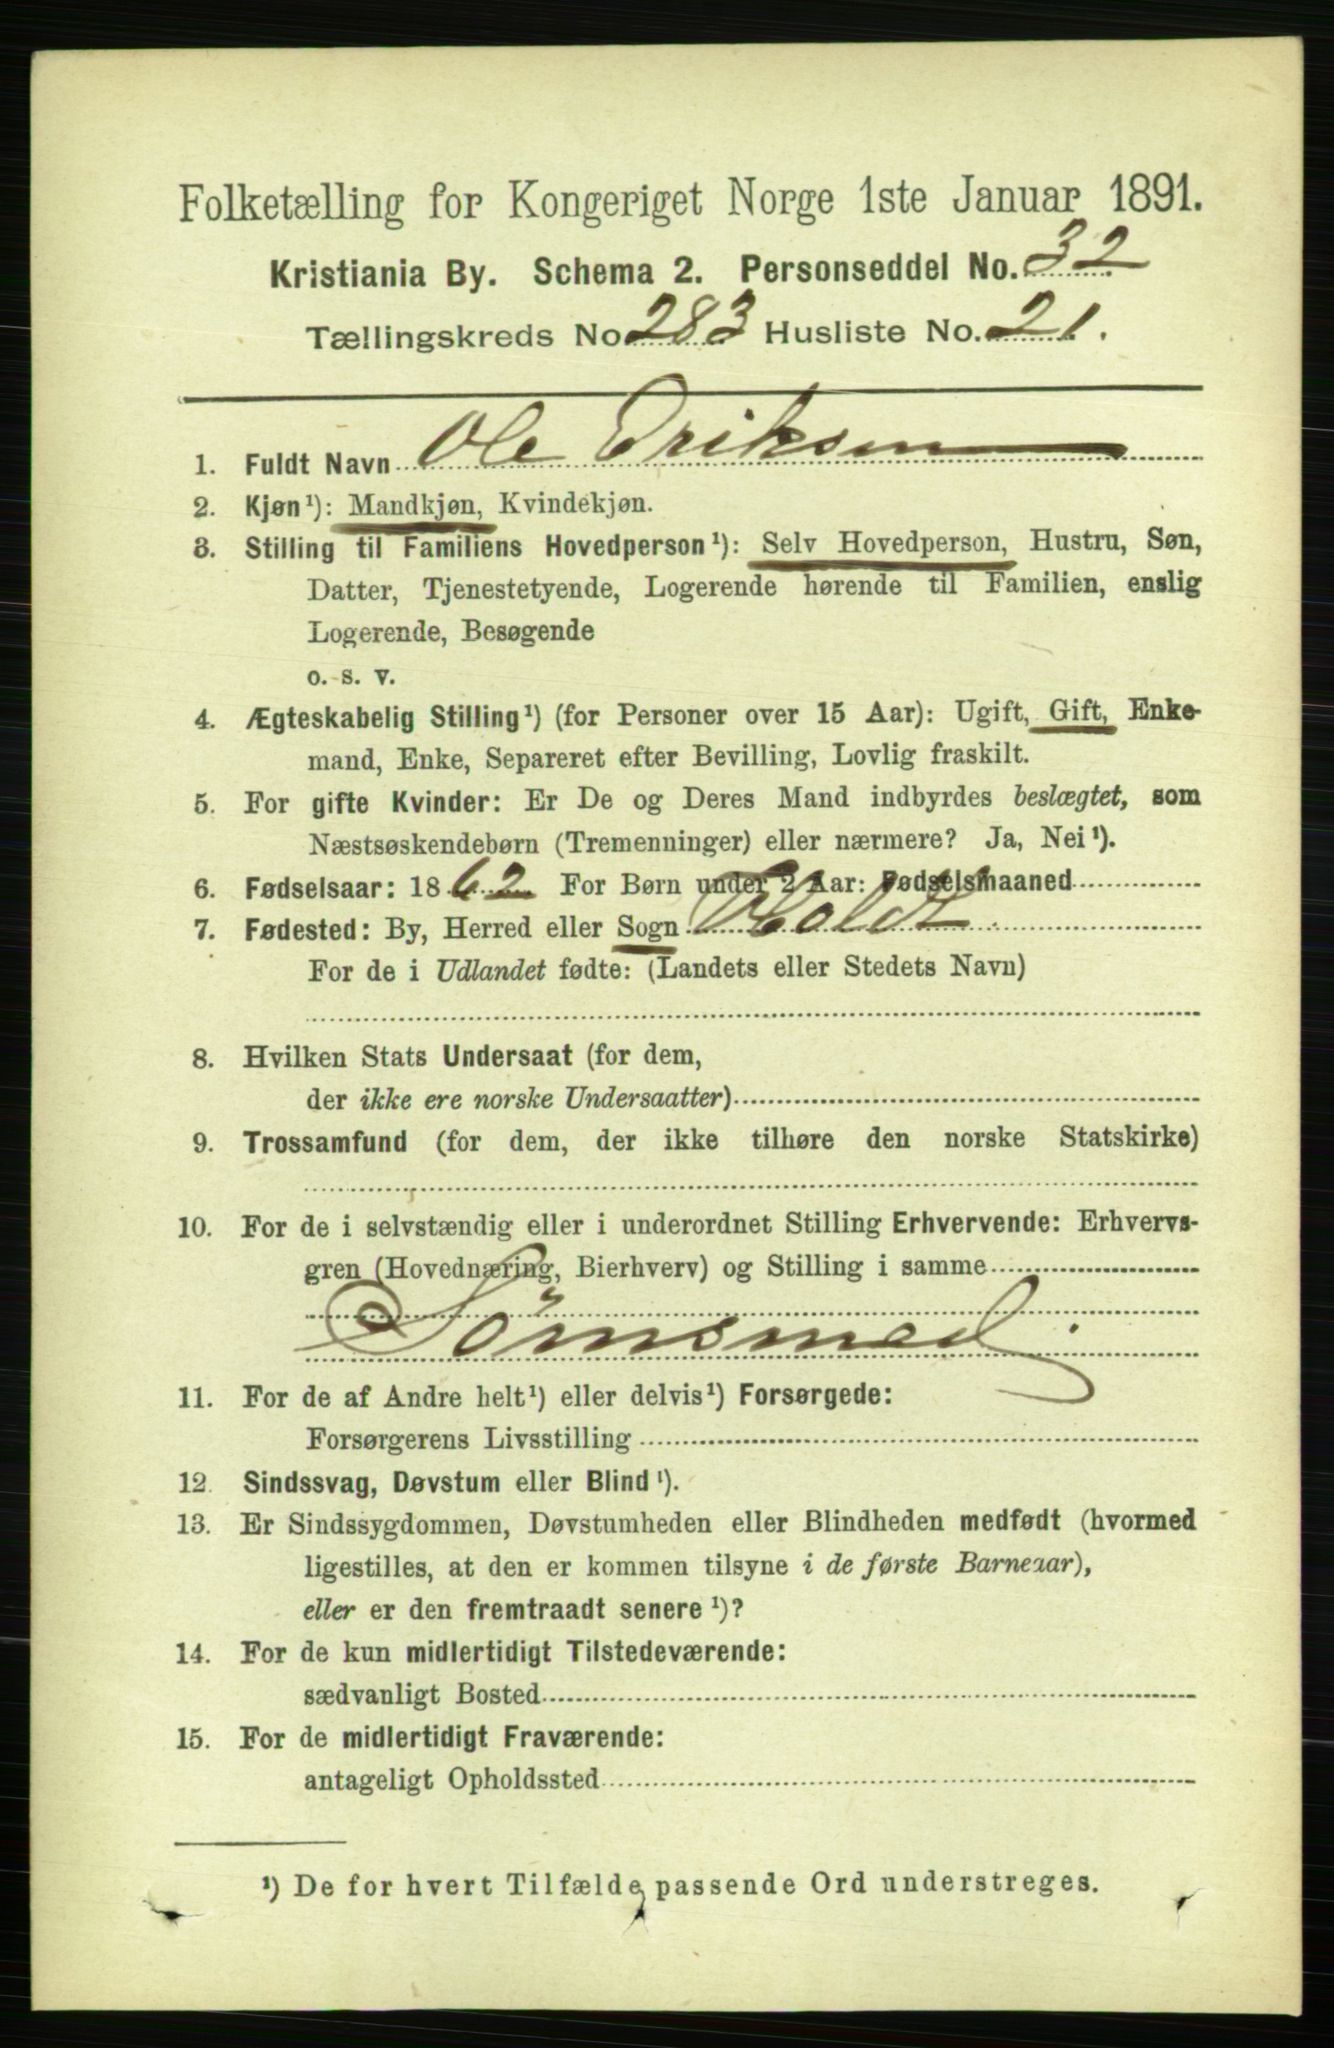 Folketælling for Kongeriget Norge 1ste Januar 1891.
Kristiania By. Schema 2. Personseddel No. 32
Tællingskreds No 283 Husliste No. 21.
1. Fuldt Navn Ole Eriksen
2. Kjøn¹): Mandkjøn, Kvindekjøn.
3. Stilling til Familiens Hovedperson¹): Selv Hovedperson, Hustru, Søn,
Datter, Tjenestetyende, Logerende hørende til Familien, enslig
Logerende, Besøgende
o. s. v.
4. Ægteskabelig Stilling¹) (for Personer over 15 Aar): Ugift, Gift, Enke-
mand, Enke, Separeret efter Bevilling, Lovlig fraskilt.
5. For gifte Kvinder: Er De og Deres Mand indbyrdes beslægtet, som
Næstsøskendebørn (Tremenninger) eller nærmere? Ja, Nei¹).
6. Fødselsaar: 1862 For Børn under 2 Aar: Fødselsmaaned
7. Fødested: By, Herred eller Sogn Holdt
For de i Udlandet fødte: (Landets eller Stedets Navn)
8. Hvilken Stats Undersaat (for dem,
der ikke ere norske Undersaatter)
9. Trossamfund (for dem, der ikke tilhøre den norske Statskirke)
10. For de i selvstændig eller i underordnet Stilling Erhvervende: Erhvervs-
gren (Hovednæring, Bierhverv) og Stilling i samme
Sömsmed.
11. For de af Andre helt¹) eller delvis¹) Forsørgede:
Forsørgerens Livsstilling
12. Sindssvag, Døvstum eller Blind¹).
13. Er Sindssygdommen, Døvstumheden eller Blindheden medfødt (hvormed
ligestilles, at den er kommen tilsyne i de første Barneaar),
eller er den fremtraadt senere¹)?
14. For de kun midlertidigt Tilstedeværende:
sædvanligt Bosted
15. For de midlertidigt Fraværende:
antageligt Opholdssted
¹) De for hvert Tilfælde passende Ord understreges.